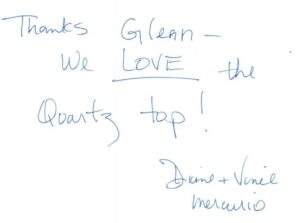 Thanks Glenn –
We LOVE the
Quartz top!
+ Vinie
Mercurio